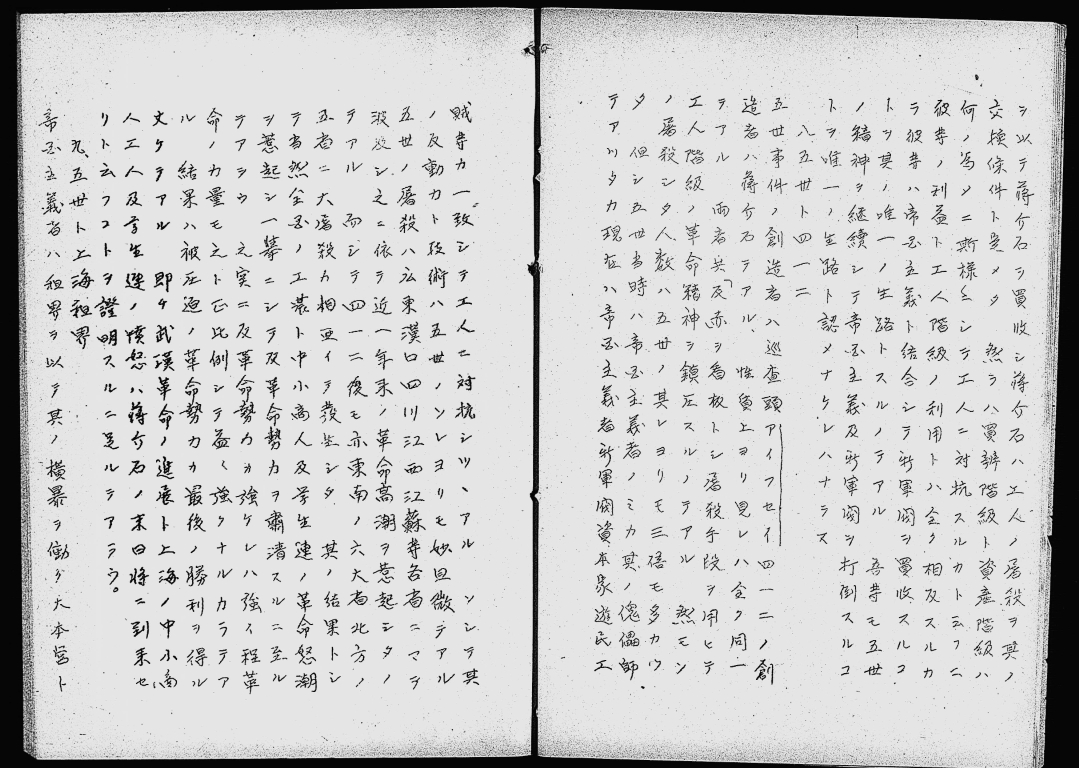 ヲ以テ蒋介石ヲ買收シ蒋介石ハ工人ノ屠殺ヲ其ノ
交換条件ト是メタ 然ラハ買辨階級ト資産階級ハ
何ノ為メニ斯様ニシテ工人ニ対抗スルカト云フニ
彼等ノ利益ト工人階級ノ利用トハ全ク相反スルカ
ラ彼等ハ帝国主義ト結合シテ新軍閥ヲ買收スルコ
トヲ其ノ唯一ノ生路トスルノテアル 吾等モ五世
ノ精神ヲ継續シテ帝国主義及新軍閥ヲ打倒スルコ
トヲ唯一ノ生路ト認メナケレハナラス
八、五世ト四一二
五世事件ノ創造者ハ巡査頭アイフセイ四一二ノ創
造者ハ蒋介石テアル、性質上ヨリ見レハ全ク同一
テアル 両者共「反赤ヲ看板トシ屠殺手段ヲ用ヒテ
工人階級ノ革命精神ヲ鎮圧スルノテアル 然モン
ノ屠殺シタ人数ハ五世ノ其レヨリモ三倍モ多カツ
タ 但シ五世当時ハ帝国主義者ノミカ其ノ傀儡師
テアリタカ現在ハ帝国主義者新軍閥資本家遊民工
賊等カ一致シテ工人ニ対抗シツヽアル ソシテ其
ノ反動力ト技術ハ五世ノソレヨリモ妙且微テアル
五世ノ屠殺ハ広東漢口四川江西江蘇等各省ニマテ
波及シ之ニ依テ近一年来ノ革命高潮ヲ惹起シタノ
テアル 而シテ四一二後モ亦東南ノ六大省北方ノ
五省ニ大屠殺カ相亜イテ發生シタ 其ノ結果トシ
テ当然全国ノ工農ト中小商人及学生連ノ革命怒潮
ヲ惹起シ一挙ニシテ反革命勢力ヲ肅清スルニ至ル
テアラウ 之実ニ反革命勢力カ強ケレハ強イ程革
命ノ力量モ之ト正比例シテ益々強クナルカラテア
ル 結果ハ被圧迫ノ革命勢力カ最後ノ勝利ヲ得ル
丈ケテアル 即ケ武漢革命ノ進展ト上海ノ中小商
人工人及学生連ノ憤怒ハ蒋介石ノ末日将ニ到来セ
リト云フコトヲ證明スルニ足ルテアラウ。
九、五世ト上海租界
帝国主義者ハ租界ヲ以テ其ノ横暴ヲ働ク大本営ト